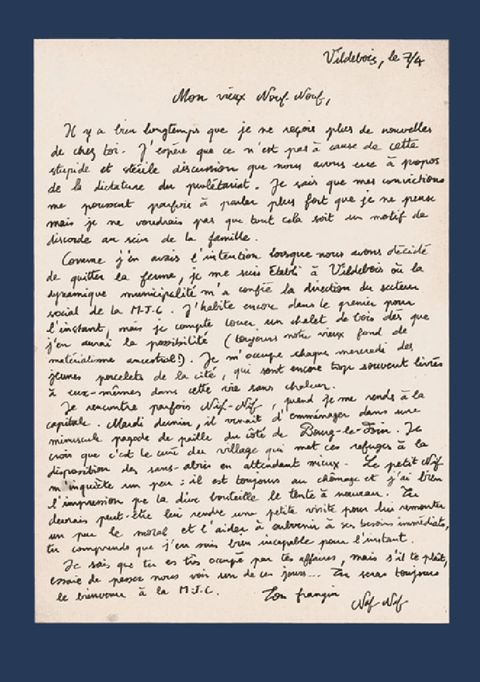 Vildebois, le 7/4
Mon vieux Nouf-Nouf,
Il y a bien longtemps que je ne reçois plus de nouvelles
de chez toi. J'espère que ce n'est pas à cause de cette
stupide et stérile discussion que nous avons eue à propos
de la dictature du prolétariat. Je sais que mes convictions
me poussent parfois à parler plus fort que je ne pense
mais je ne voudrais pas que tout cela soit un motif de
discorde au sein de la famille.
Comme j'en avais l'intention lorsque nous avons décidé
de quitter la ferme, je me suis établi à Vildebois où la
dynamique municipalité m'a confié la direction du secteur
social de la M.J.C. J'habite encore dans le grenier pour
l'instant, mais je compte louer un chalet de bois dès que
j'en aurai la possibilité (toujours notre vieux fond de
matérialisme ancestral!). Je m'occupe chaque mercredi des
jeunes porcelets de la cité, qui sont encore trop souvent livrés
à eux-mêmes dans cette vie sans chaleur.
Je rencontre parfois Nif-Nif, quand je me rends à la
capitale. Mardi dernier, il venait d'emménager dans une
minuscule pagode de paille du côté de Bourg-le-Foin. Je
crois que c'est le curé du village qui met ces refuges à la
disposition des sans-abris en attendant mieux. Le petit Nif
m'inquiète un peu : il est toujours au chômage et j'ai bien
l'impression que la dive bouteille le tente à nouveau. Tu
devrais peut-être lui rendre une petite visite pour lui remonter
un peu le moral et l'aider à subvenir à ses besoins immédiats,
tu comprends que j'en suis bien incapable pour l'instant.
Je sais que tu es très occupé par tes affaires, mais s'il te plaît,
essaie de passer nous voir un de ces jours... Tu seras toujours
le bienvenu à la M.J.C.
Ton frangin
Naf-Naf